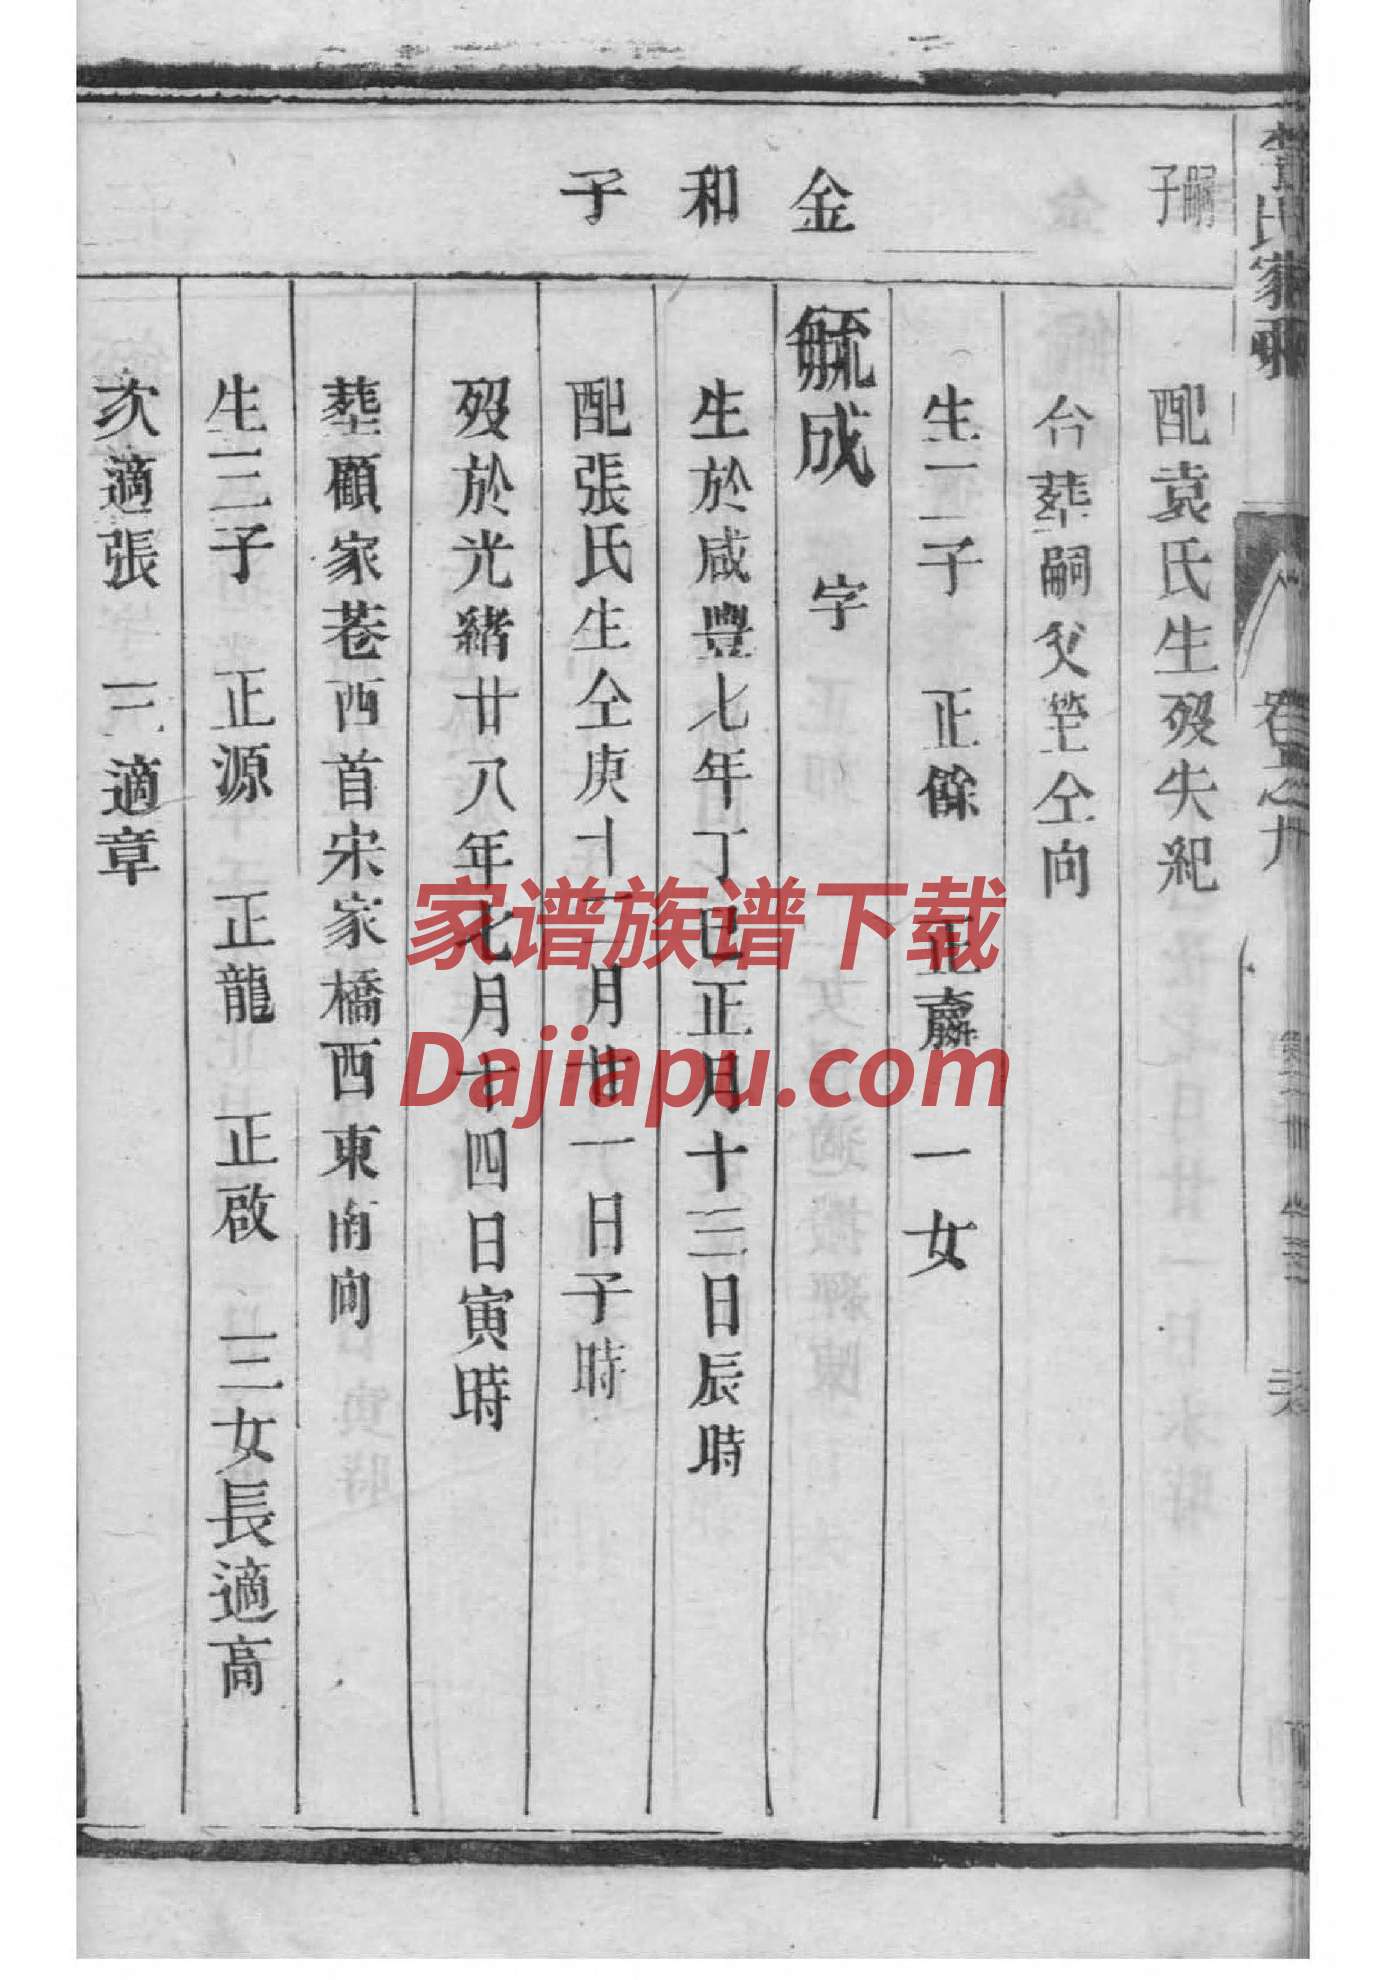 氏家乘
卷之九
嗣子
配袁氏生歿失紀
合葬嗣父塋仝向
生二子 正餘 正贏 一女
金和子
毓成 字
生於咸豐七年丁巳正月十三日辰時
配張氏生仝庚十二月廿一日子時
歿於光緒廿八年七月十四日寅時
葬顧家巷西首宋家橋西東南向
生三子 正源 正龍 正啟 三女長適高
次適張 三適章
家谱族谱下载
Dajiapu.com